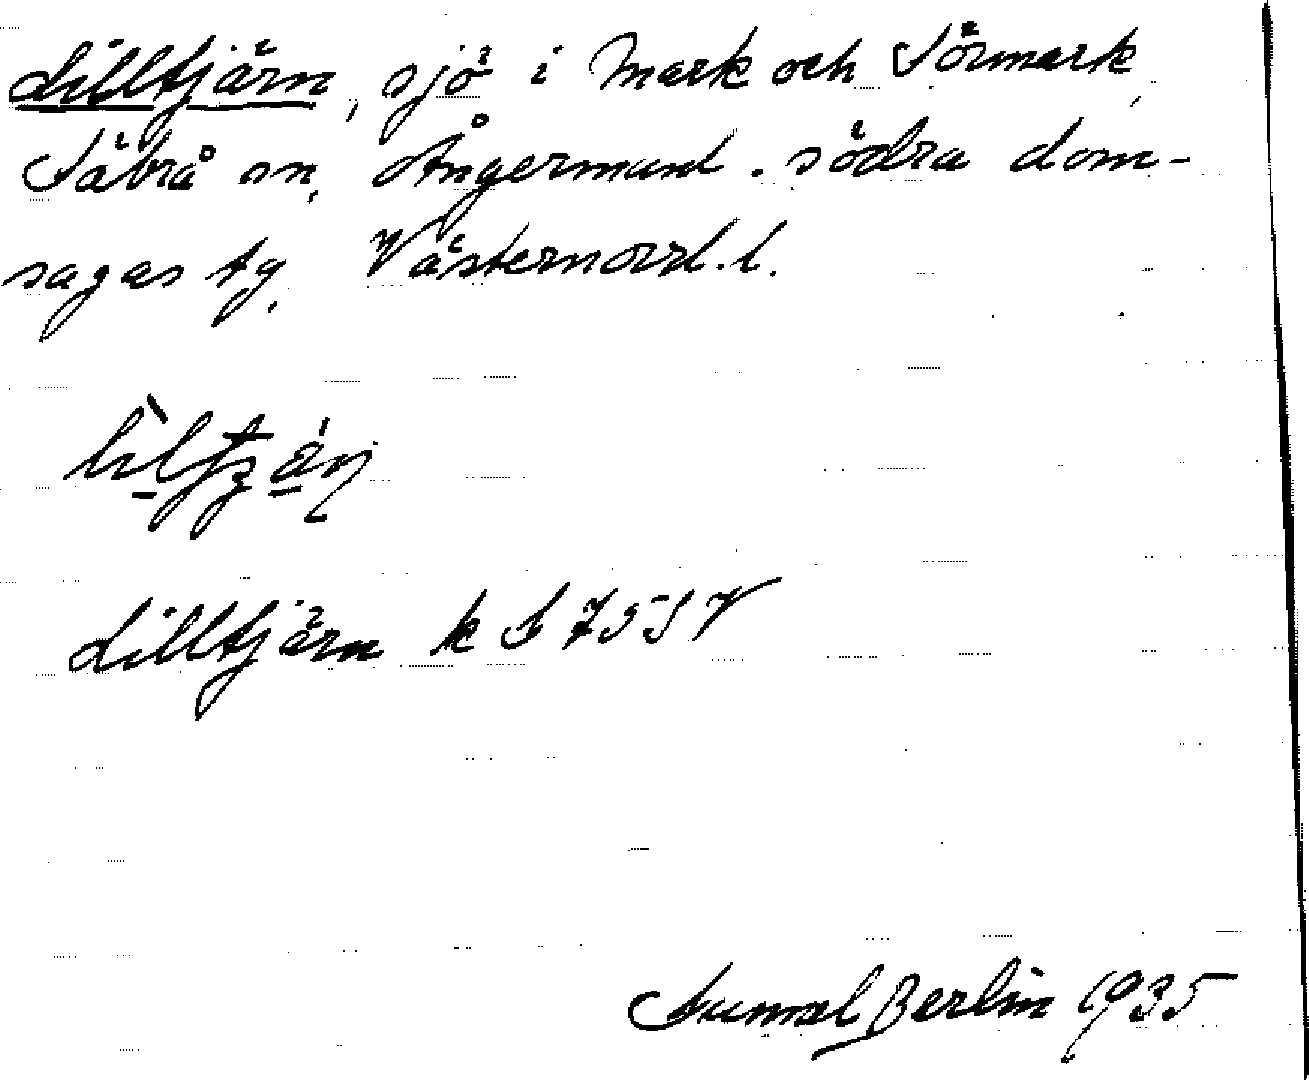 Lilltjärn, sjö i Mark och Sörmark,
Säbrå sn, Ångermanl. södra dom-
sagas tg. Västernorrl. l.
Lilltjärn k
Berlin 1935